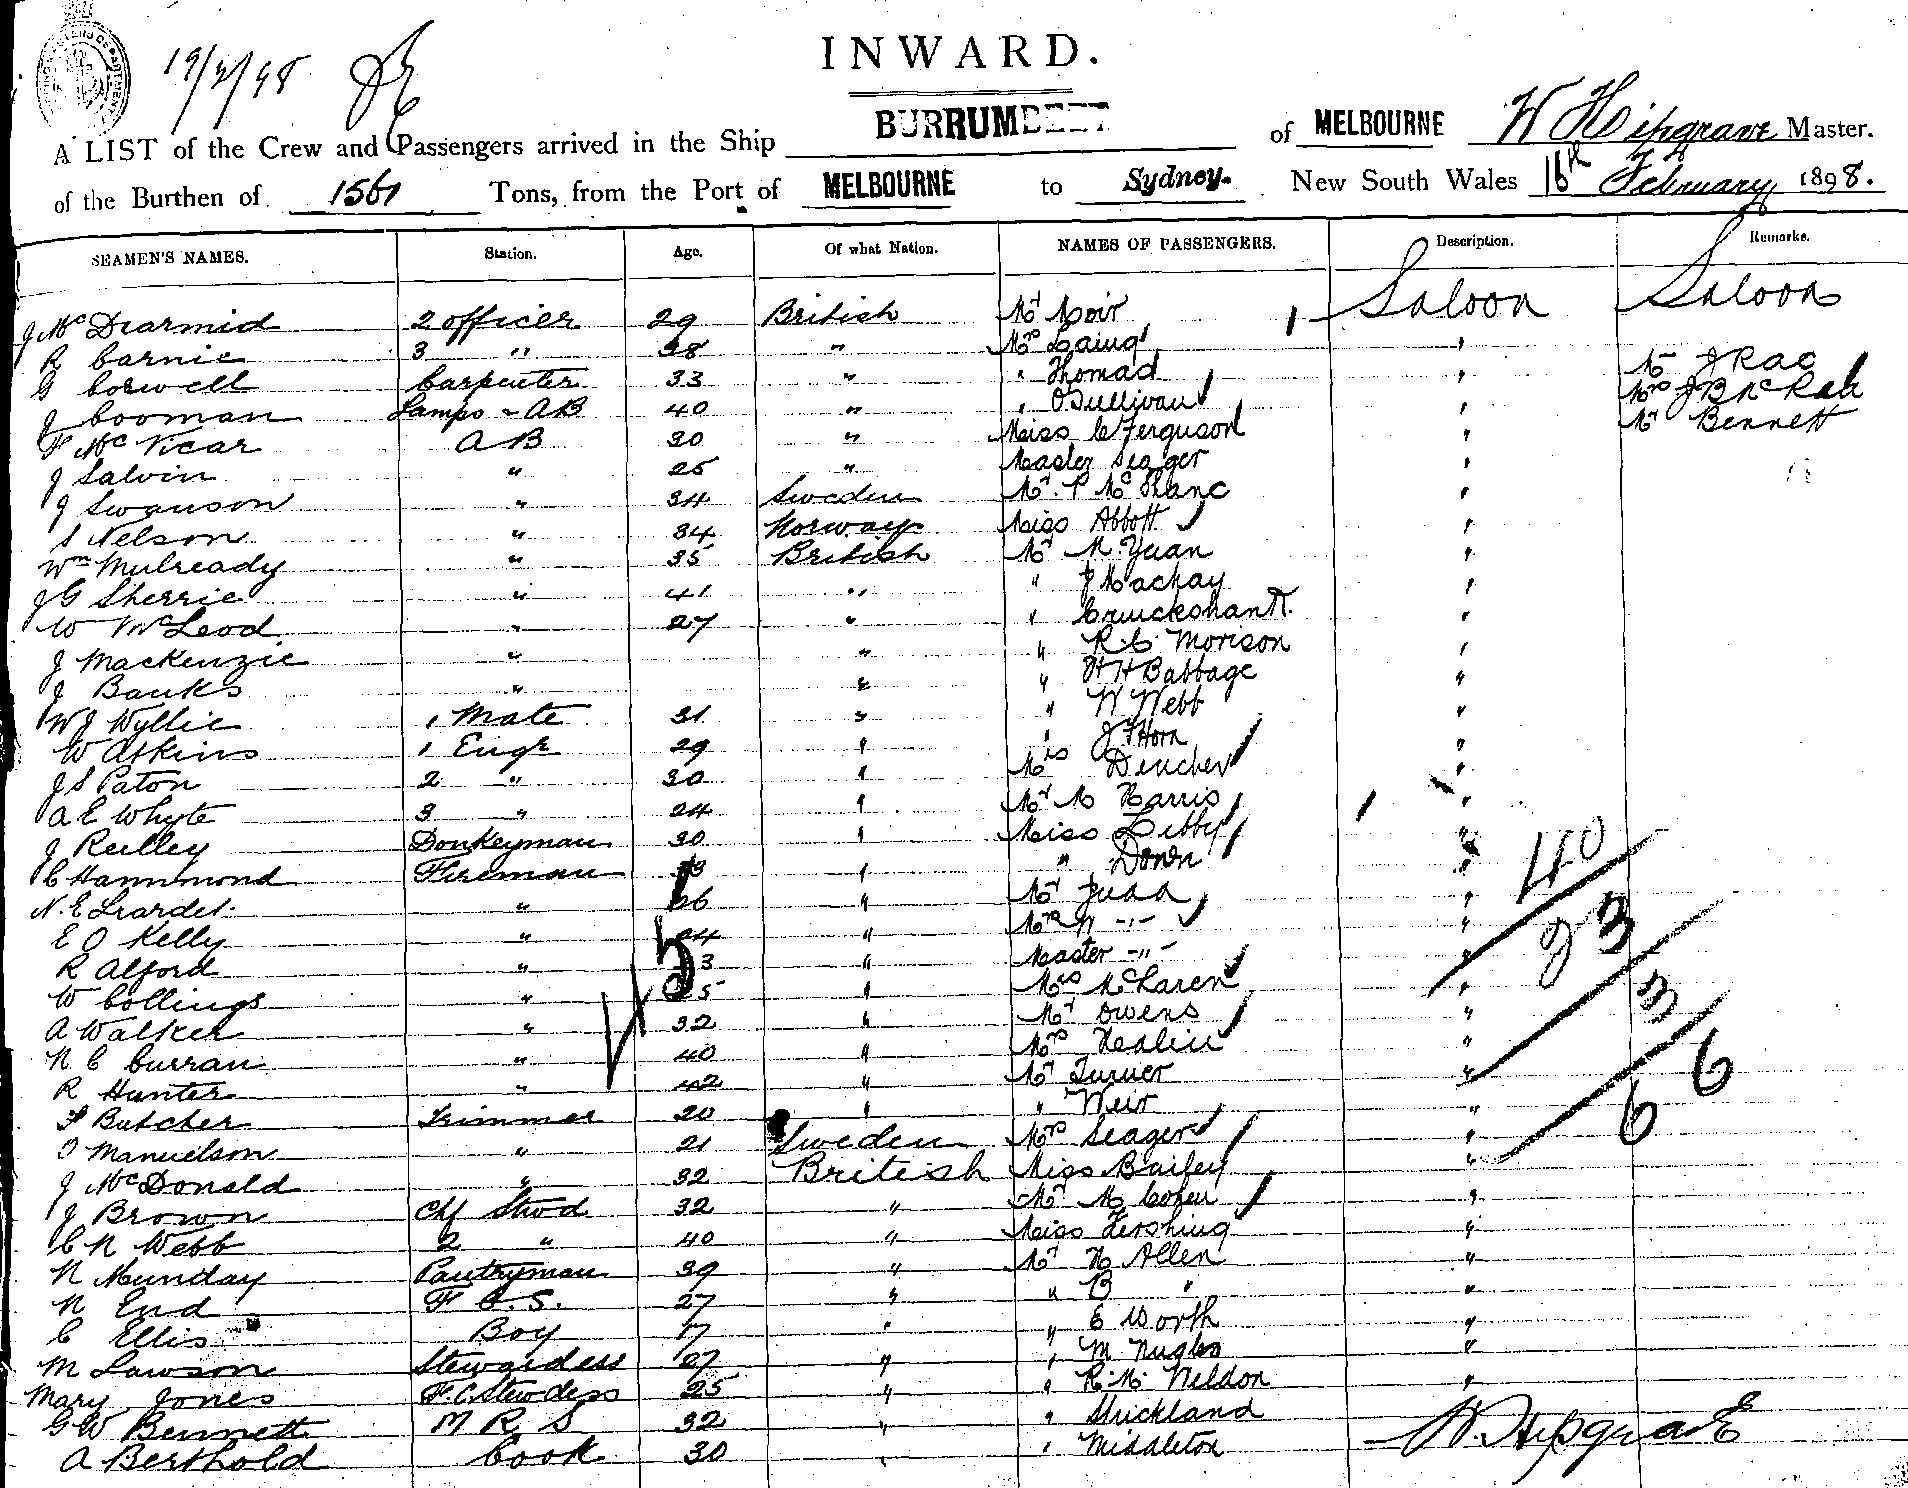 19/2/98
INWARD.
A LIST of the Crew and Passengers arrived in the Ship BURRUMBEET of MELBOURNE W Hipgrave Master.
of the Burthen of 1561 Tons, from the Port of MELBOURNE to Sydney. New South Wales 16th February 1898.
SEAMEN'S NAMES. Station. Age. Of what Nation. NAMES OF PASSENGERS. Description. Remarks.
J McDearmid 2 officer 29 British Mr Moir 1 Saloon Saloon
R Carnie 3 " 38 " Mrs Laing "
G Corwell Carpenter 33 " " Thomas " Mr J Rae
J Cooman Lamps & AB 40 " " O'Sullivan " Mrs J B McRae
F McVicar AB 30 " Miss C Ferguson " Mr Bennett
J Salvin " 25 " Master Seager "
J Swanson " 34 Sweden Mr. P McShane "
S Nelson " 34 Norway Miss Abbott "
Wm Mulready " 35 British Mr M. Yuan "
J G Sherrie " 41 " " J Mackay "
W McLeod " 27 " " Cruickshank "
J Mackenzie " " " R. C. Morison "
J Banks " " " H H Babbage "
W J Wyllie 1 Mate 31 " " W Webb "
W Atkins 1 Engr 29 " " J Horn "
J S Paton 2 " 30 " Mrs Dencher "
A E Whyte 3 " 24 " Mr M Harris 1 "
J Reilley Donkeyman 30 " Miss Libby "
C Hammond Fireman 33 " " Down " 40
N. E Liardet " 26 " Mr Judd "
E O Kelly " 24 " Mrs " " 23
R Alford " 3 " Master " "
W Collings " 25 " Mrs McLaren " 3
A Walker " 32 " Mr Owens "
N C Curran " 40 " Mrs Healiu " 66
R Hunter " 42 " Mr Turner "
F Butcher Trimmer 20 " " Weir "
O Manuelson " 21 Sweden Mrs Seager "
J McDonald " 32 British Miss Bailey "
J Brown Chf Stwd 32 " Mr M Cohen "
C N Webb 2 " 40 " Miss Hershing "
N Munday Pantryman 39 " Mr H Allen "
N End F C. S. 27 " " B " "
C Ellis Boy 17 " " E Worth "
M Lawson Stewardess 27 " " M "
Mary Jones F. C. Stewdess 25 " " R. M. Weldon "
G W Bennett M R S 32 " " Strickland
A Berthold Cook 30 " " Middleton
W. Hipgrave